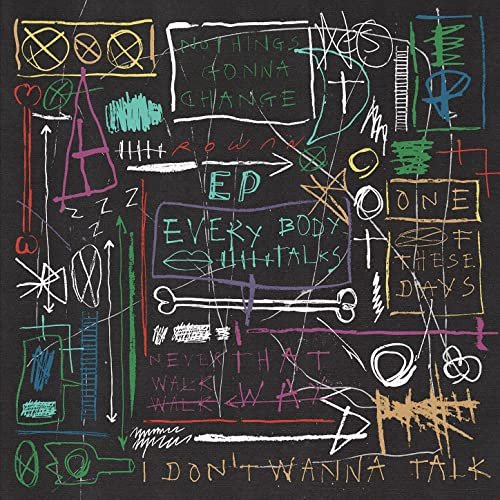 NOTHINGS
GONNA
CHANGE
ROWAN
EP
EVERY BODY
TALKS
ONE
OF
THESE
DAYS
Z
Z
Z
Z
NEVER THAT
WALK
WALK WAY
I DON'T WANNA TALK